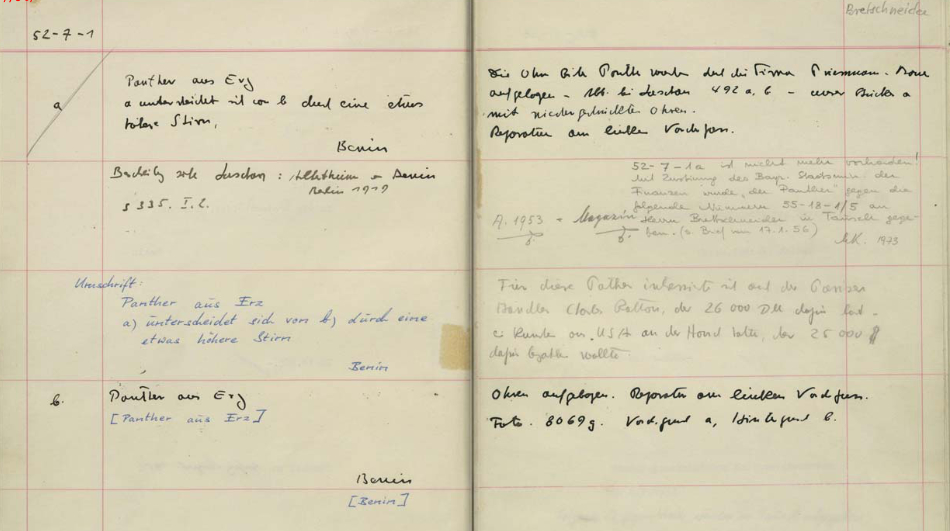 Bretschneider
52-7-1
a
Panther aus Erz
a unterscheidet sich von b durch eine etwas
höhere Stirn.
Benin
Luschan: Altertümer v Benin
Berlin 1919
S 335. I. 2.
Umschrift:
Panther aus Erz
a) unterscheidet sich von b) durch eine
etwas höhere Stirn
Benin
b.
Panther aus Erz
[Panther aus Erz]
Benin
[Benin]
Die Ohren Panther wurden durch die Firma
aufgebogen - Abb. bei Luschan 492 a, b - unser Stück a
mit niedergedrückten Ohren.
Reparatur am linken Vorderfuss.
52-7-1a ist nicht mehr vorhanden!
Mit Zustimmung des Bayr. Staatsmin. der
Finanzen wurde "der Panther" gegen die
folgende Nummern 55-18-1/5 an
A. 1953 Magazin Herrn Bretschneider in Tausch gege-
ben. (s. Brief vom 17.1.56)
1973
Für diese Panther interessierte sich auch der Pariser
Händler Charles Ratton, der 26 000 DM dafür bot.
Kunden in USA an der Hand hatte, der 25 000 $
dafür bezahlen wollte
Ohren aufgebogen. Reparatur am linken Vorderfuss.
Foto. 8069g. Vordergrund a, Hintergrund b.